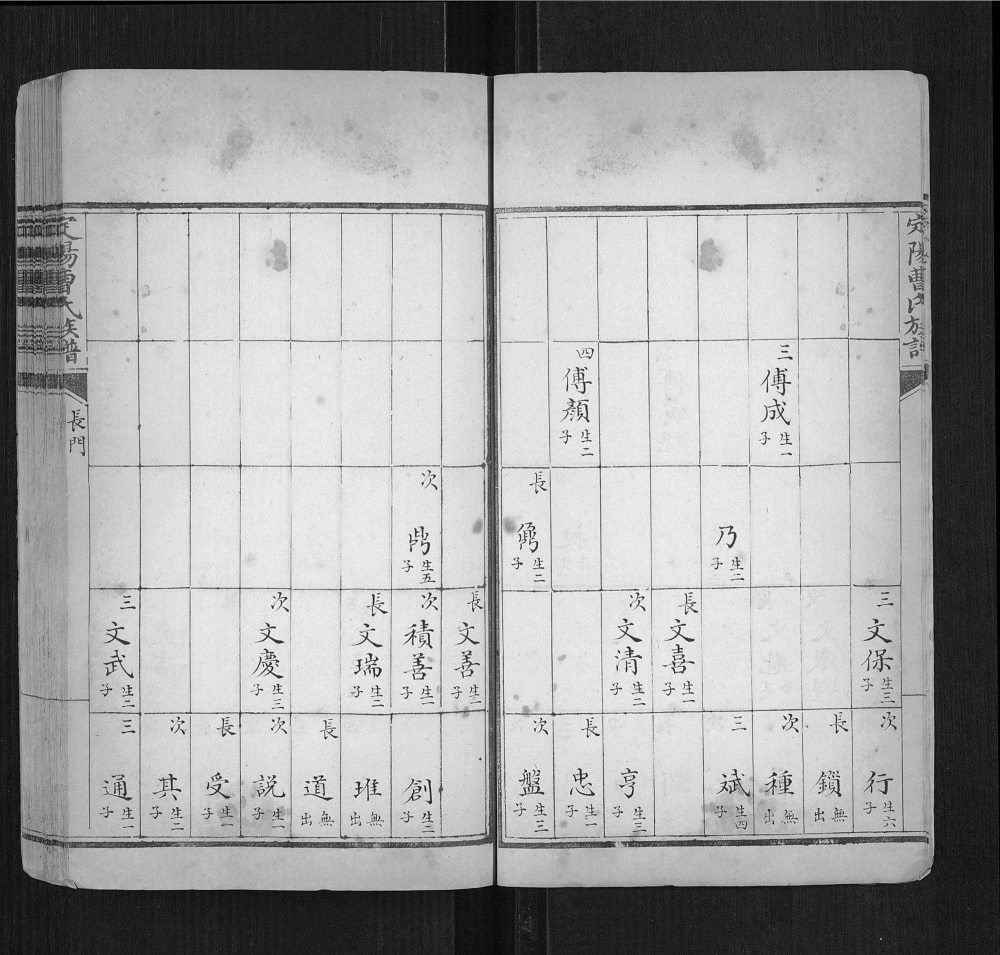 定陽曹氏族譜
三 傅成 生一子
四 傅顏 生二子
乃 生二子
長 生二子
三 文保 生三子
長 文喜 生一子
次 文清 生二子
次 行 生六子
長 鎖 無出
次 種 無出
三 斌 生四子
亨 生三子
長 忠 生一子
次 盤 生三子
次 生五子
長 文善 生一子
次 積善 生一子
長 文瑞 生二子
次 文慶 生三子
三 文武 生二子
創 生二子
琟 無出
長 道 無出
次 説 生一子
長 受 生一子
次 其 生二子
三 通 生一子
定陽曹氏族譜
長門